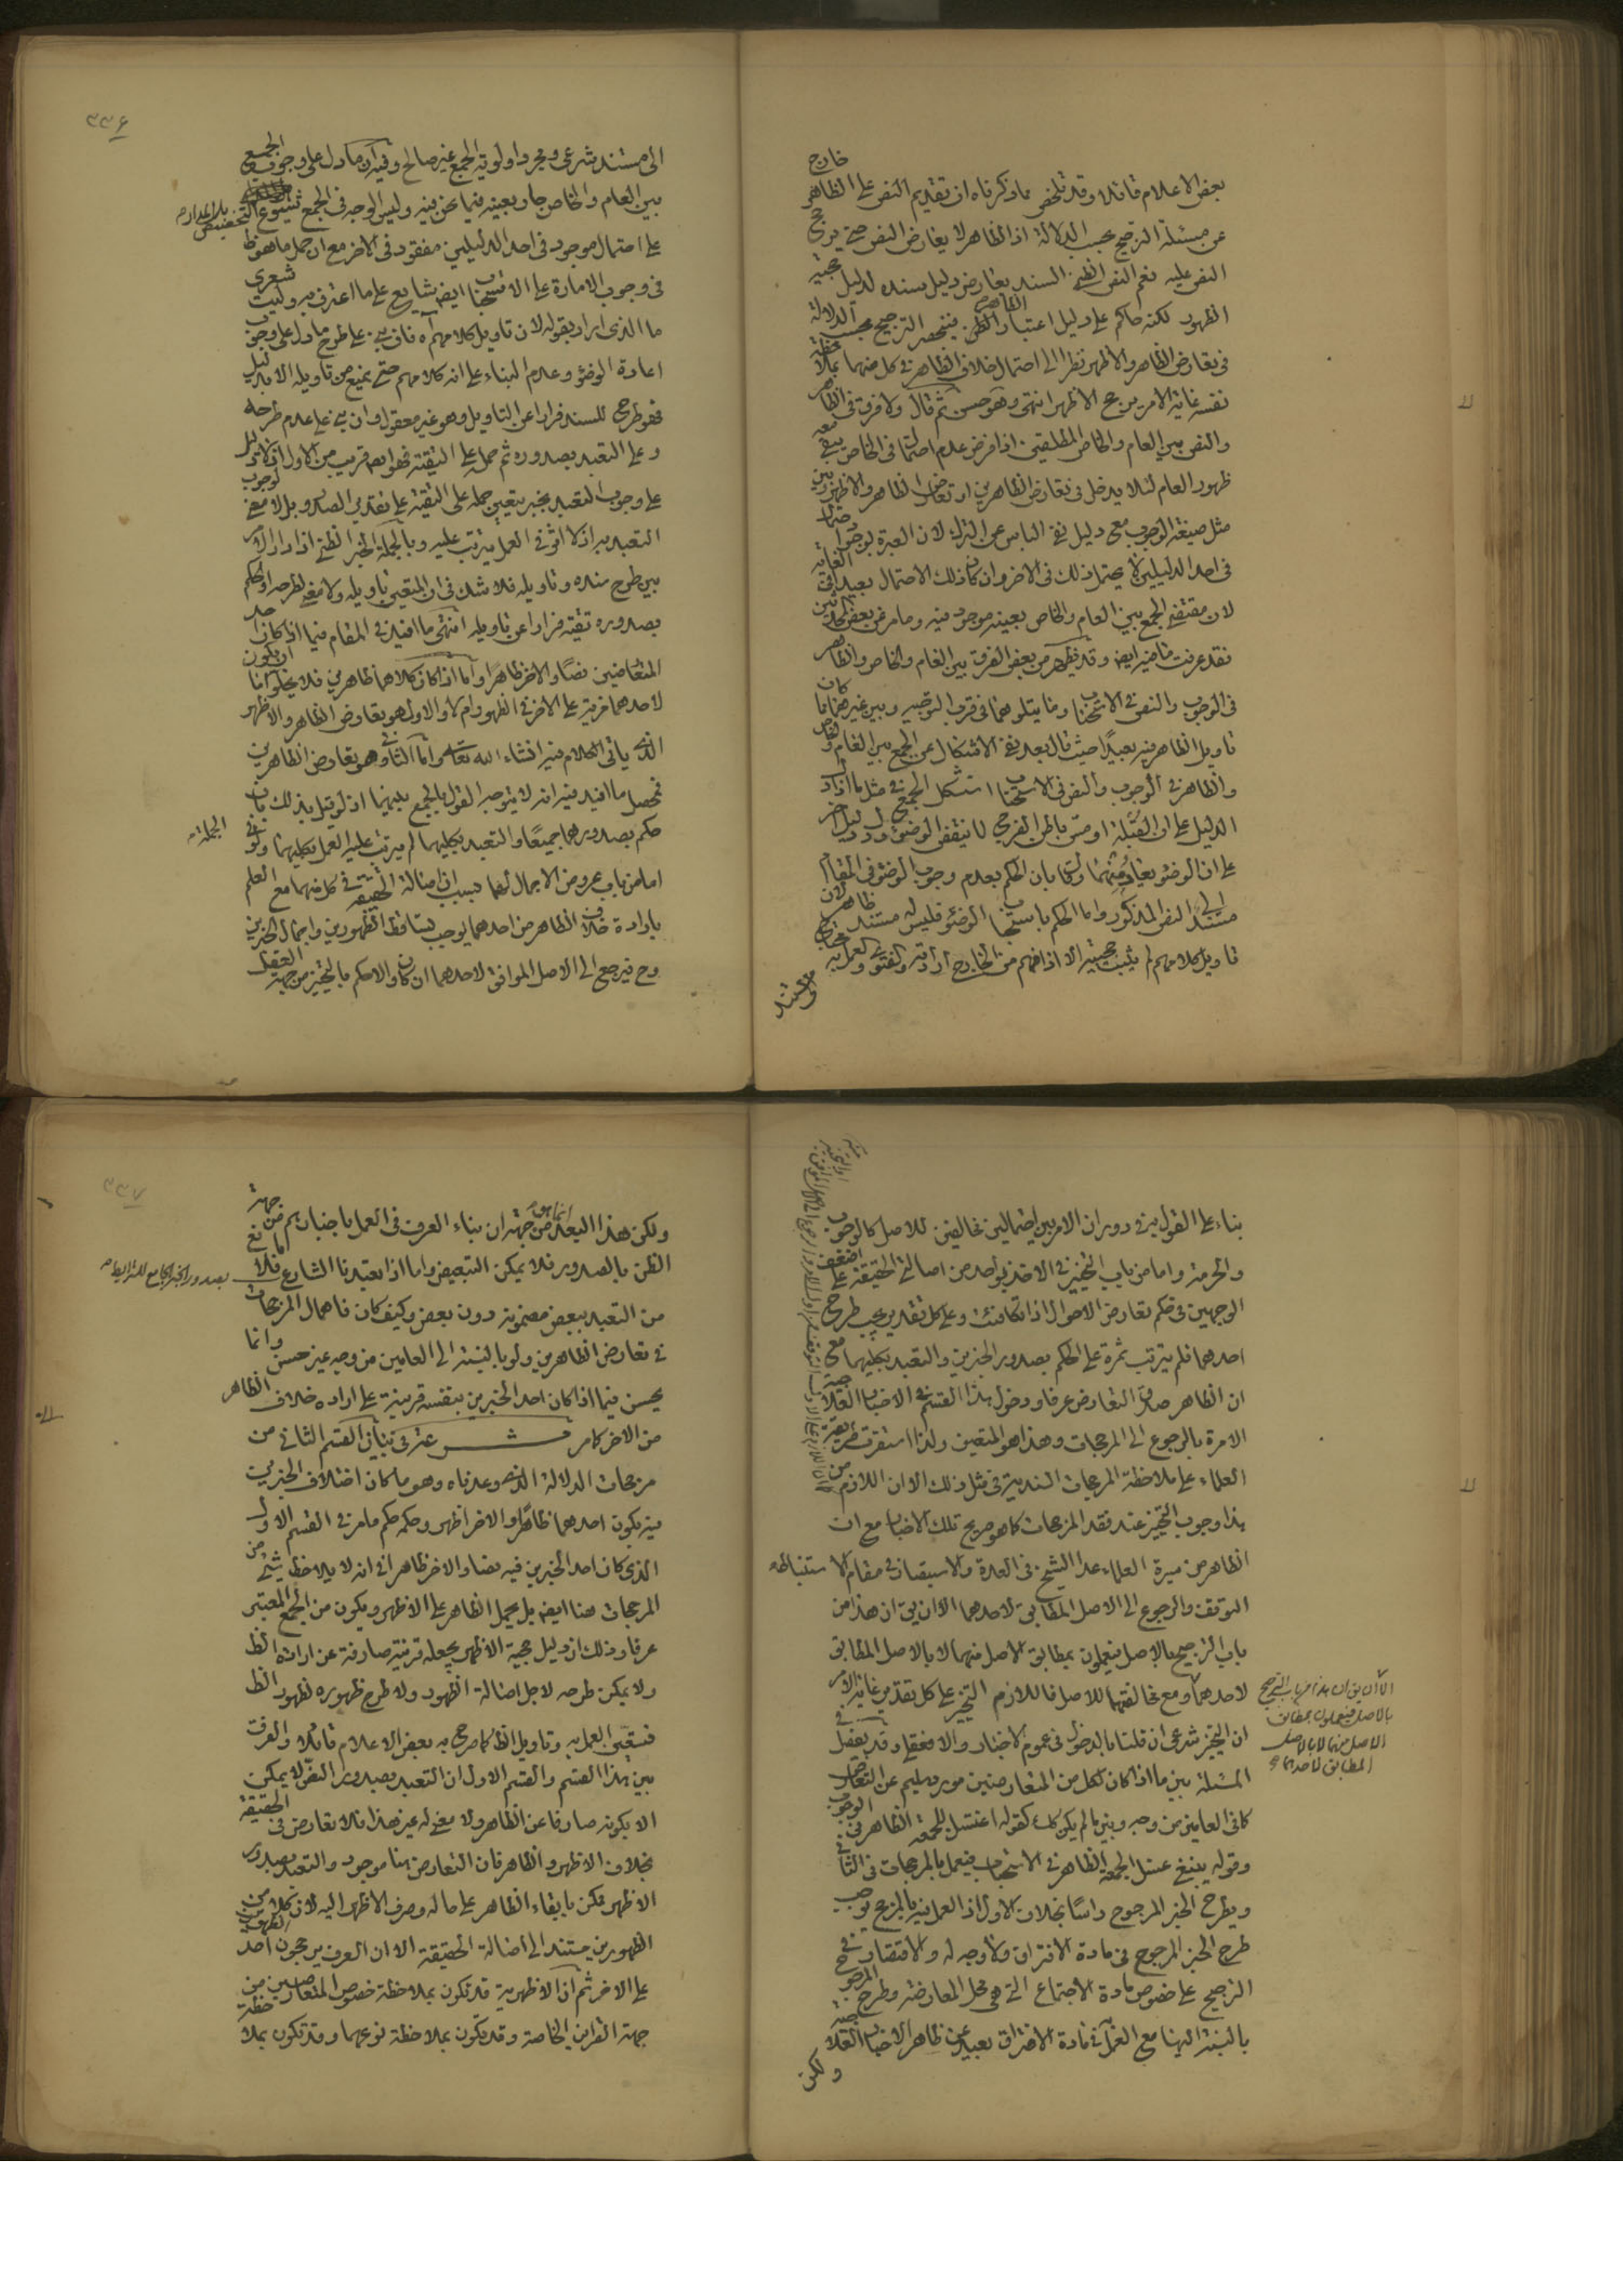 بعض الاعلام قائلا وقد تلخص مما ذكرناه ان تقديم النص على الظاهر خارج
عن مسئلة الترجيح بحسب الدلالة اذ الظاهر لا يعارض النص حتى يرجح
النص عليه نعم النص الظني السند يعارض دليل سنده لدليل حجية
الظهور لكنه حاكم على دليل اعتبار الظاهر فينحصر الترجيح بحسب الدلالة
في تعارض الظاهر والاظهر نظرا الى احتمال خلاف الظاهر في كل منهما بملاحظة
نفسه غاية الامر يرجح الاظهر انتهى وهو حسن ثم قال ولا فرق في الظاهر
والنص بين العام والخاص المطلقين اذا فرض عدم احتمال في الخاص يبقى معه
ظهور العام لئلا يدخل في تعارض الظاهرين او تعارض الظاهر والاظهر وبين
مثل صيغة الوجوب مع دليل نفي الباس عن الترك لان العبرة بوجود احتمال
في احد الدليلين لا يحتمل ذلك في الاخر وان كان ذلك الاحتمال بعيدا في الغاية
لان مقتضى الجمع بين العام والخاص بعينه موجود فيه وما مر عن بعض
فقد عرفت ما فيه ايضا وقد يظهر من بعض الفرق بين العام والخاص والظاهر
في الوجوب والنص في الاستحباب وما يتلوهما في قرب التوجيه وبين غيرهما مما كان
تاويل الظاهر فيه بعيدا حيث قال بعد نفي الاشكال عن الجمع بين العام والخاص
والظاهر في الوجوب والنص في الاستحباب استشكل الجمع في مثل ما اذا دل
الدليل على ان القبلة او مس باطن الفرج لا ينقض الوضوء وورد دليل اخر
على ان الوضوء يعاد منهما وقال بان الحكم بعدم وجوب الوضوء في المقام
مستند الى النص المذكور واما الحكم باستحباب الوضوء فليس له مستند ظاهر لان
تاويل كلامهم لم يثبت حجيته الا اذا فهم من الخارج ارادته والفتوى والعمل به محتاج
الى مستند
٣٣٦
الى مستند شرعي ومجرد اولوية الجمع غير صالح وفيه ان ما دل على وجوب الجمع
بين العام والخاص جار بعينه فيما نحن فيه وليس الوجه في الجمع شيوع التخصيص بل المدار
على احتمال موجود في احد الدليلين مفقود في الاخر مع ان حمل ما هو ظاهر
في وجوب الامارة على الاستحباب ايضا شايع على ما اعترف به وليت شعري
ما الذي اراد بقوله لان تاويل كلامهم آه فان بنى على طرح ما دل على وجوب
اعادة الوضوء وعدم البناء على انه كلامهم حتى يمنع من تاويله الا بدليل
فهو طرح للسند فرارا عن التاويل وهو غير معقول وان بنى على عدم طرحه
وعلى التعبد بصدوره ثم حمله على التقية فهو ايضا قريب من الاول اذ لا دليل
على وجوب التعبد بخبر يتعين حمله على التقية على تقدير الصدور بل لا معنى لوجوب
التعبد به اذ لا اثر في العمل يترتب عليه وبالجملة الخبر الظني اذا دار الامر
بين طرح سنده وتاويله فلا شك في ان المتعين تاويله ولا معنى لطرحه او الحكم
بصدوره تقية فرارا عن تاويله انتهى ما افيد في المقام فيما اذا كان احد
المتعارضين نصا والاخر ظاهرا واما اذا كان كلاهما ظاهرين فلا يخلو اما ان يكون
لاحدهما مزية على الاخر في الظهور ام لا والاول هو تعارض الظاهر والاظهر
الذي ياتي الكلام فيه انشاء الله تعالى واما الثاني وهو تعارض الظاهرين
فمحصل ما افيد فيه انه لا يتوجه القول بالجمع بينهما اذ لو قيل بذلك بان
حكم بصدورهما جميعا والتعبد بكليهما لم يترتب عليه العمل بكليهما ولو في الجملة
اما من باب عروض الاجمال لهما بسبب ان اصالة الحقيقة في كل منهما مع العلم
بارادة خلاف الظاهر من احدهما يوجب تساقط الظهورين واجمال الخبرين
وح فيرجع الى الاصل الموافق لاحدهما ان كان والا حكم بالتخيير من جهة العقل
بناء على القول به في دوران الامر بين احتمالين مخالفين للاصل كالوجوب
والحرمة واما من باب التخيير في الاخذ بواحد من اصالتي الحقيقة على اضعف
الوجهين في حكم تعارض الاحوال اذا تكافئت وعلى كل تقدير يجب طرح
احدهما فلم يترتب ثمرة على الحكم بصدور الخبرين والتعبد بكليهما مع
ان الظاهر صدق التعارض عرفا ودخول هذا القسم في الاخبار العلاجية
الامرة بالرجوع الى المرجحات وهذا هو المتعين ولذا استقرت طريقة
العلماء على ملاحظة المرجحات السندية في مثل ذلك الا ان اللازم من
هذا وجوب التخيير عند فقد المرجحات كما هو صريح تلك الاخبار مع ان
الظاهر من سيرة العلماء عدا الشيخ في العدة والاستبصار في مقام الاستنباط
التوقف والرجوع الى الاصل المطابق لاحدهما الا ان يق ان هذا من
باب الترجيح بالاصل فيعملون بمطابق الاصل منهما لا بالاصل المطابق
لاحدهما ومع مخالفتهما للاصل فاللازم التخيير على كل تقدير غاية الامر
ان التخيير شرعي ان قلنا بالدخول في عموم الاخبار والا فعقلي وقد يفصل في
المسئلة بين ما اذا كان لكل من المتعارضين مورد سليم عن التعارض
كما في العامين من وجه وبين ما لم يكن كك كقوله اغتسل للجمعة الظاهر في الوجوب
وقوله ينبغي غسل الجمعة الظاهر في الاستحباب فيعمل بالمرجحات في الثاني
ويطرح الخبر المرجوح راسا بخلاف الاول اذ العمل فيه بالمرجح يوجب
طرح الخبر المرجوح في مادة الافتراق ولا وجه له والاقتصار في
الترجيح على خصوص مادة الاجتماع التي هي محل المعارضة وطرح المرجوح
بالنسبة اليها مع العمل في مادة الافتراق بعيد عن ظاهر الاخبار العلاجية
ولكن
الا ان يق ان هذا من باب الترجيح
بالاصل فيعملون بمطابق
الاصل منهما لا بالاصل
المطابق لاحدهما
٣٣٧
ولكن هذا البعد انما هو من جهة ان بناء العرف في العمل باخبارهم من جهة
الظن بالصدور فلا يمكن التبعيض واما اذا تعبدنا الشارع بصدور الخبر الجامع للشرايط فلا مانع
من التعبد ببعض مضمونه دون بعض وكيف كان فاهمال المرجحات
في تعارض الظاهرين ولو بالنسبة الى العامين من وجه غير حسن وانما
يحسن فيما اذا كان احد الخبرين بنفسه قرينة على ارادة خلاف الظاهر
من الاخر كما مر
مرجحات الدلالة الذي وعدناه وهو ما كان اختلاف الخبرين
فيه بكون احدهما ظاهرا والاخر اظهر وحكمه حكم ما مر في القسم الاول
الذي كان احد الخبرين فيه نصا والاخر ظاهرا في انه لا يلاحظ شيئ من
المرجحات هنا ايضا بل يحمل الظاهر على الاظهر ويكون من الجمع المعتبر
عرفا وذلك ان دليل حجية الاظهر يجعله قرينة صارفة عن ارادة الظ
ولا يمكن طرحه لاجل اصالة الظهور ولا طرح ظهوره لظهور الظ
فتعين العمل به وتاويل الظ كما صرح به بعض الاعلام قائلا والفرق
بين هذا القسم والقسم الاول ان التعبد بصدور النص لا يمكن
الا بكونه صارفا عن الظاهر ولا معنى له غير هذا فلا تعارض في الحقيقة
بخلاف الاظهر والظاهر فان التعارض هنا موجود والتعبد بصدور
الاظهر ممكن بابقاء الظاهر على حاله وصرف الاظهر اليه لان كلا من
الظهورين مستند الى اصالة الحقيقة الا ان العرف يرجحون احد الظهورين
على الاخر ثم ان الاظهرية قد تكون بملاحظة خصوص المتعارضين من
جهة القراين الخاصة وقد تكون بملاحظة نوعهما وقد تكون بملاحظة